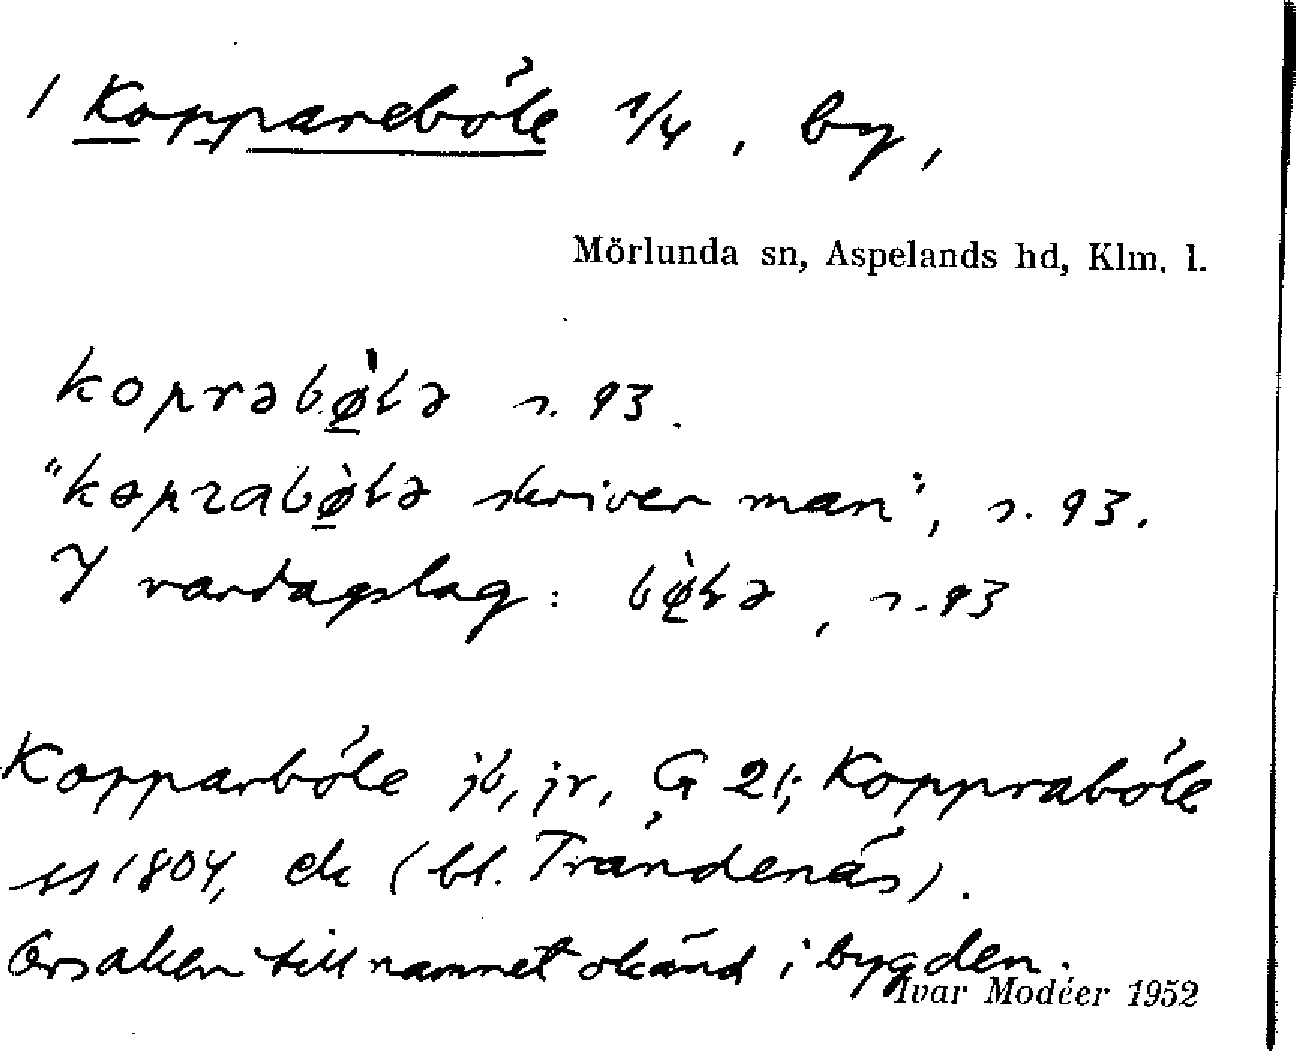 1 Koppareböle 1/4, by,
Mörlunda sn, Aspelands hd, Klm. l.
koprabø̀lə s. 93.
"koprabø̀lə skriver man", s. 93.
I vardagslag: bø̀lə, s. 93
Kopparböle jb, jr, G 21; Koppraböle
1804, ek (bl. Trändenäs).
Orsaken till namnet okänd i bygden.
Ivar Modéer 1952